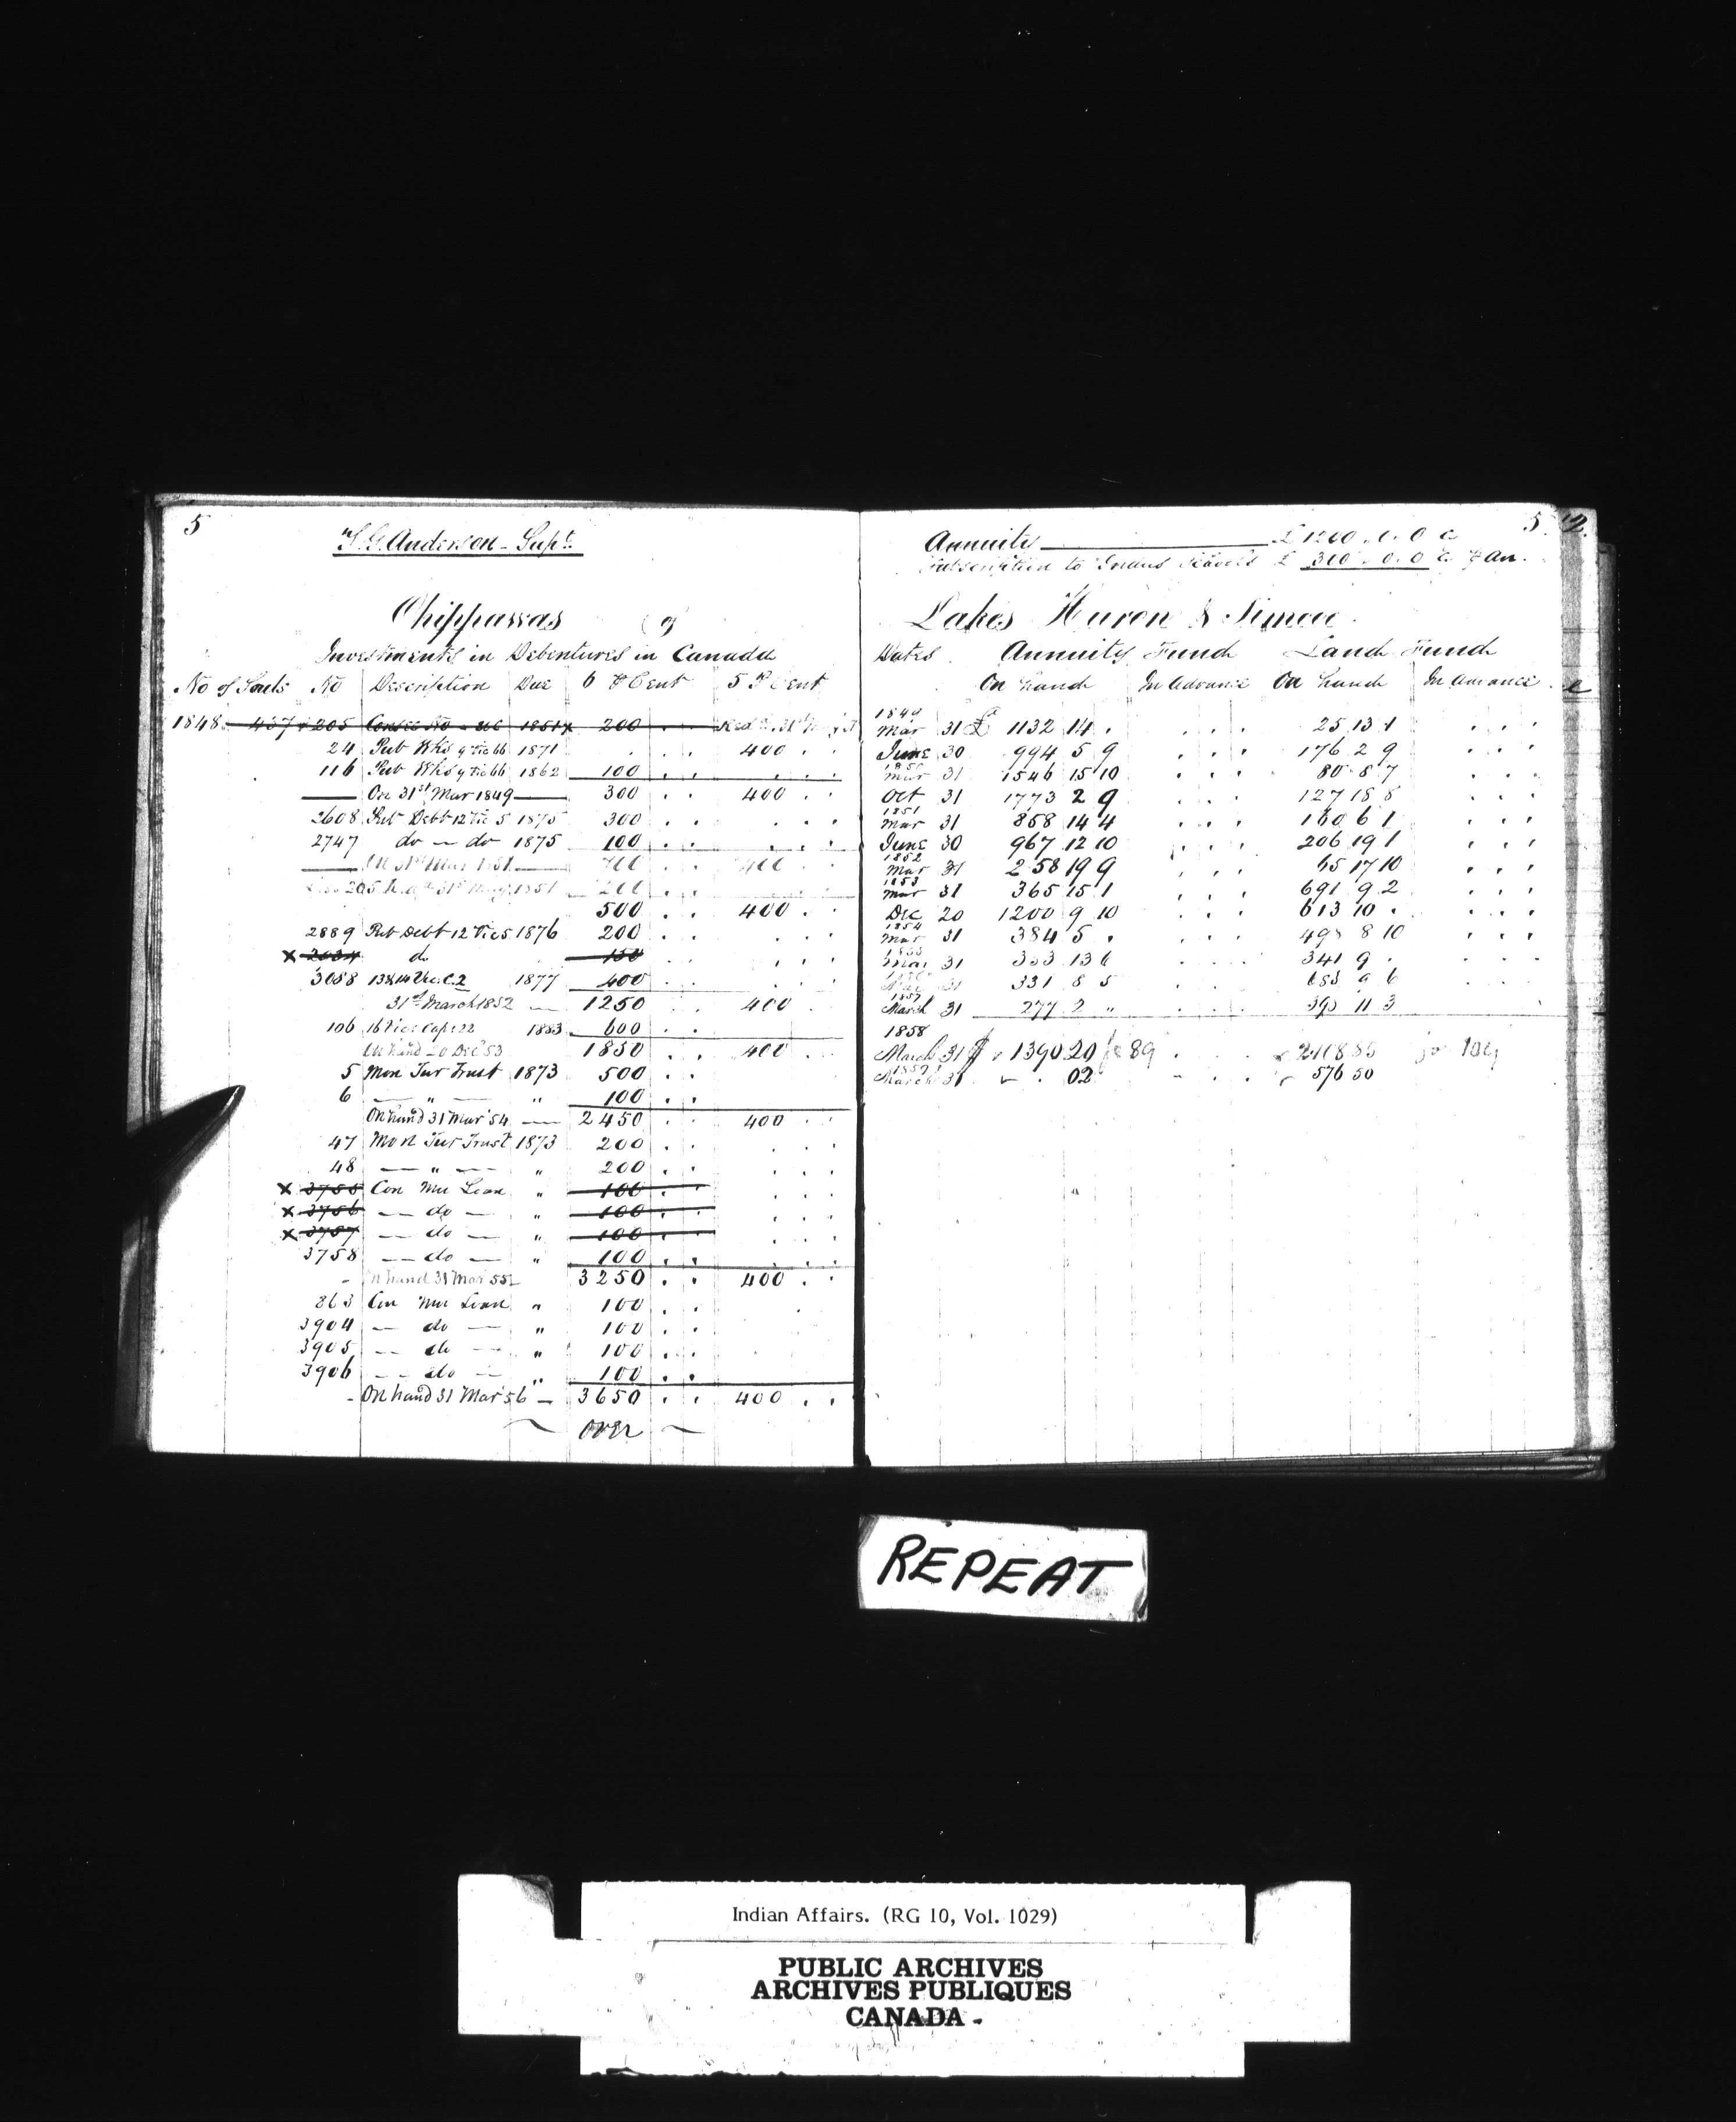 5
T. G. Anderson - Supt.
Chippawas of
Investments in Debentures in Canada
No of Souls No Description Due 6 P Cent 5 P Cent
1848 - 437 205 1851 200
24 Pub Wks 9 Vic 66 1871 400
116 Pub Wks 9 Vic 66 1862 100
On 31st Mar 1849 300 400
2608 Pub Debt 12 Vic 5 1875 300
2747 do - do 1875 100
On 31st Mar 1851 700 400
205 31st May 1851 200
500 400
2889 Pub Debt 12 Vic 5 1876 200
x do 150
3088 13 & 14 Vic. C. 2 1877 400
31st March 1852 1250 400
106 16 Vic Cap: 22 1883 600
On hand 20 Dec 53 1850 400
5 Mon Tur Trust 1873 500
6 " " 100
On hand 31 Mar 54 2450 400
47 Mon Tur Trust 1873 200
48 " " 200
x 3755 Con Mu Loan " 100
x 3756 do " 100
x 3757 do " 100
3758 do " 100
On hand 31 Mar 55 3250 400
863 Con Mu Loan " 100
3904 do " 100
3905 do " 100
3906 do " 100
On hand 31 Mar 56 3650 400
over
5
Annuity £ 1200 . 0 . 0 c
Subscription to Schools £ 300 . 0 . 0 c P an.
Lakes Huron & Simcoe
Dates Annuity Fund Land Fund
On hand In Advance On hand In Advance
1849
Mar 31 £ 1132 14 . 25 13 1
June 30 994 5 9 176 2 9
1850
Mar 31 1546 15 10 80 8 7
Oct 31 1773 2 9 127 18 8
1851
Mar 31 858 14 4 160 6 1
June 30 967 12 10 206 19 1
1852
Mar 31 258 19 9 65 17 10
1853
Mar 31 365 15 1 691 9 2
Dec 20 1200 9 10 613 10 .
1854
Mar 31 384 5 . 498 8 10
1855
Mar 31 353 13 6 341 9 .
31 331 8 5 653 9 6
1857
March 31 277 2 " 393 11 3
1858
March 31 $ 1390 20 89 2118 85 104
1859
March 31 . 02 576 50
2.
REPEAT
Indian Affairs. (RG 10, Vol. 1029)
PUBLIC ARCHIVES
ARCHIVES PUBLIQUES
CANADA